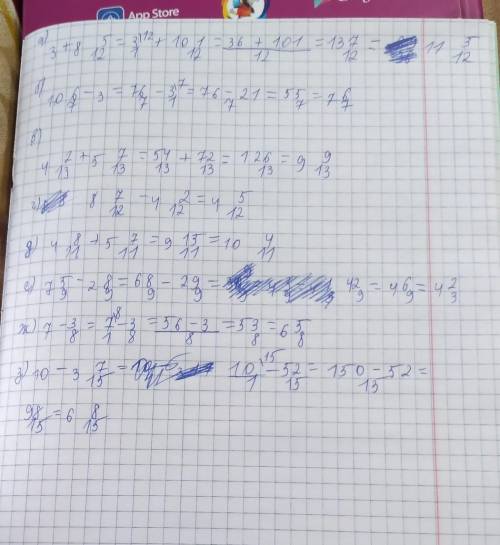 App Store
а) 3 + 8 5/12 = 3/1 ¹² + 101/12 = 36 + 101/12 = 137/12 = 11 5/12
б) 10 6/7 - 3 = 76/7 - 3/1 ⁷ = 76 - 21/7 = 55/7 = 7 6/7
в)
4 2/13 + 5 7/13 = 54/13 + 72/13 = 126/13 = 9 9/13
г) 8 7/12 - 4 2/12 = 4 5/12
д) 4 8/11 + 5 7/11 = 9 15/11 = 10 4/11
е) 7 5/9 - 2 8/9 = 68/9 - 26/9 = 42/9 = 4 6/9 = 4 2/3
ж) 7 - 3/8 = 7/1 ⁸ - 3/8 = 56 - 3/8 = 53/8 = 6 5/8
з) 10 - 3 7/15 = 10/1 ¹⁵ - 52/15 = 150 - 52/15 =
98/15 = 6 8/15